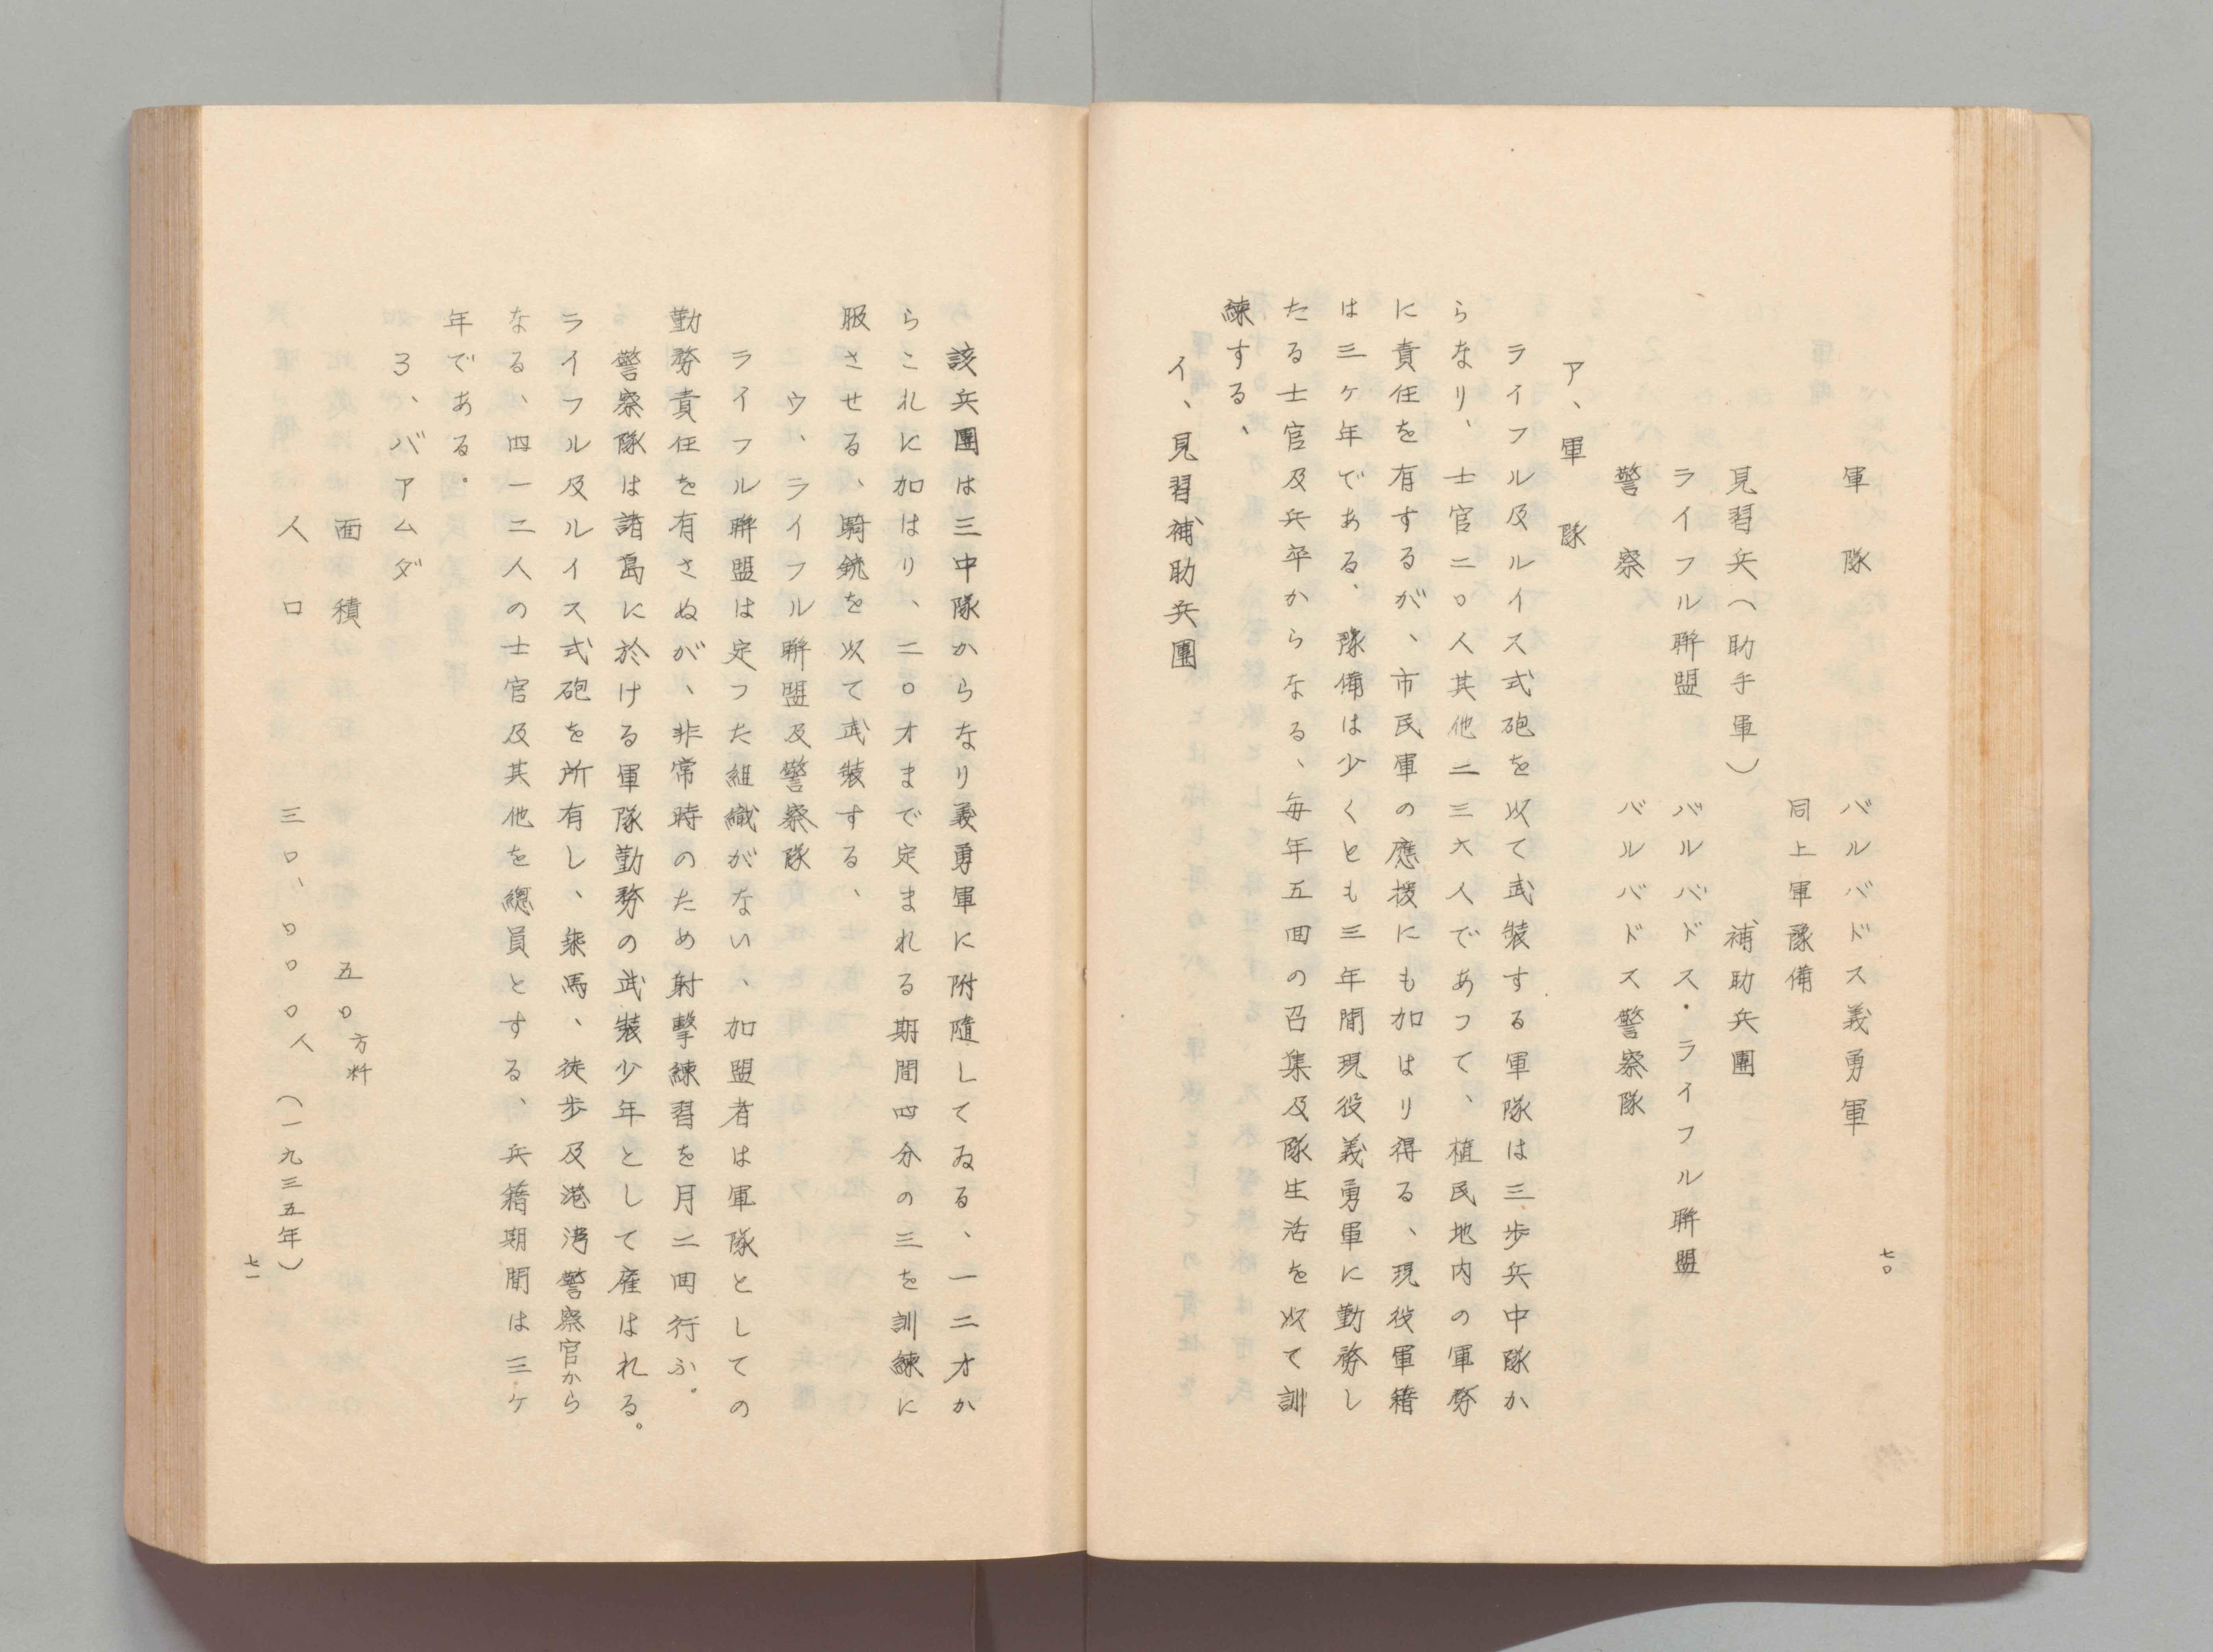 七〇
軍隊　バルバドス義勇軍
同上軍豫備
見習兵（助手軍）　補助兵團
ライフル聯盟　バルバドス・ライフル聯盟
警察　バルバドス警察隊
ア、軍隊
ライフル及ルイス式砲を以て武装する軍隊は三歩兵中隊か
らなり、士官二〇人其他二三六人であつて、植民地内の軍務
に責任を有するが、市民軍の應援にも加はり得る、現役軍籍
は三ヶ年である、豫備は少くとも三年間現役義勇軍に勤務し
たる士官及兵卒からなる、毎年五回の召集及隊生活を以て訓
練する、
イ、見習補助兵團
該兵團は三中隊からなり義勇軍に附隨してゐる、一二才か
らこれに加はり、二〇才まで定まれる期間四分の三を訓練に
服させる、騎銃を以て武装する、
ウ、ライフル聯盟及警察隊
ライフル聯盟は定つた組織がない、加盟者は軍隊としての
勤務責任を有さぬが、非常時のため射撃練習を月二回行ふ。
警察隊は諸島に於ける軍隊勤務の武装少年として雇はれる。
ライフル及ルイス式砲を所有し、乗馬、徒歩及港湾警察官から
なる、四一二人の士官及其他を總員とする、兵籍期間は三ヶ
年である。
3、バアムダ
面積　五〇方粁
人口　三〇、〇〇〇人（一九三五年）
七一